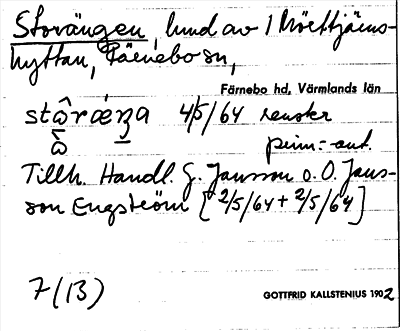 Storängen, lund av 1 Mörttjärns-
hyttan, Färnebo sn,
Färnebo hd, Värmlands län
4/5/64
Tillh. Handl. G. Jansson o. O. Jans-
son Engström [2/5/64 + 2/5/64]
7 (13)
GOTTFRID KALLSTENIUS 1902